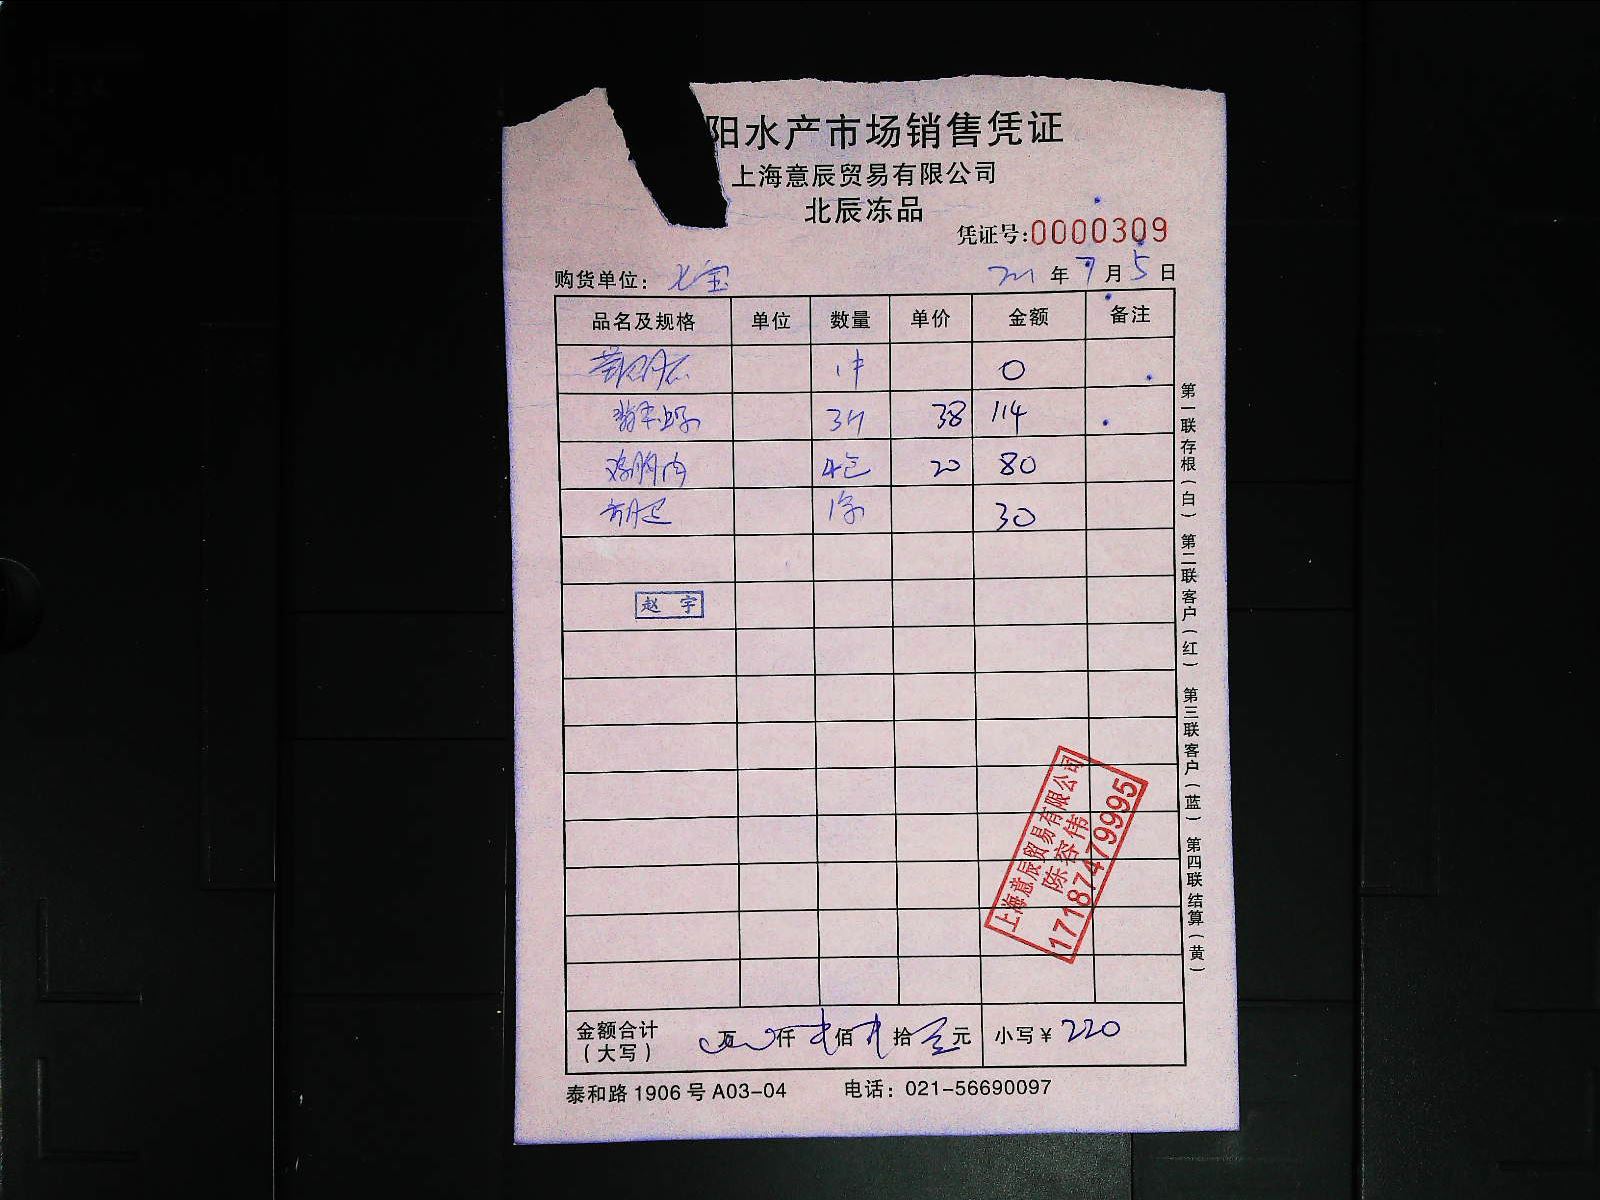 阳水产市场销售凭证
上海意辰贸易有限公司
北辰冻品
凭证号:0000309
购货单位: 七宝 年 7 月 5 日
品名及规格 单位 数量 单价 金额 备注
1件 0
38 114
鸡胸肉 4包 20 80
30
赵 宇
上海意辰贸易有限公司
陈容伟
17187479995
金额合计 万 仟 佰 拾 元 小写¥ 220
(大写)
泰和路1906号A03-04 电话: 021-56690097
第一联存根(白) 第二联客户(红) 第三联客户(蓝) 第四联结算(黄)